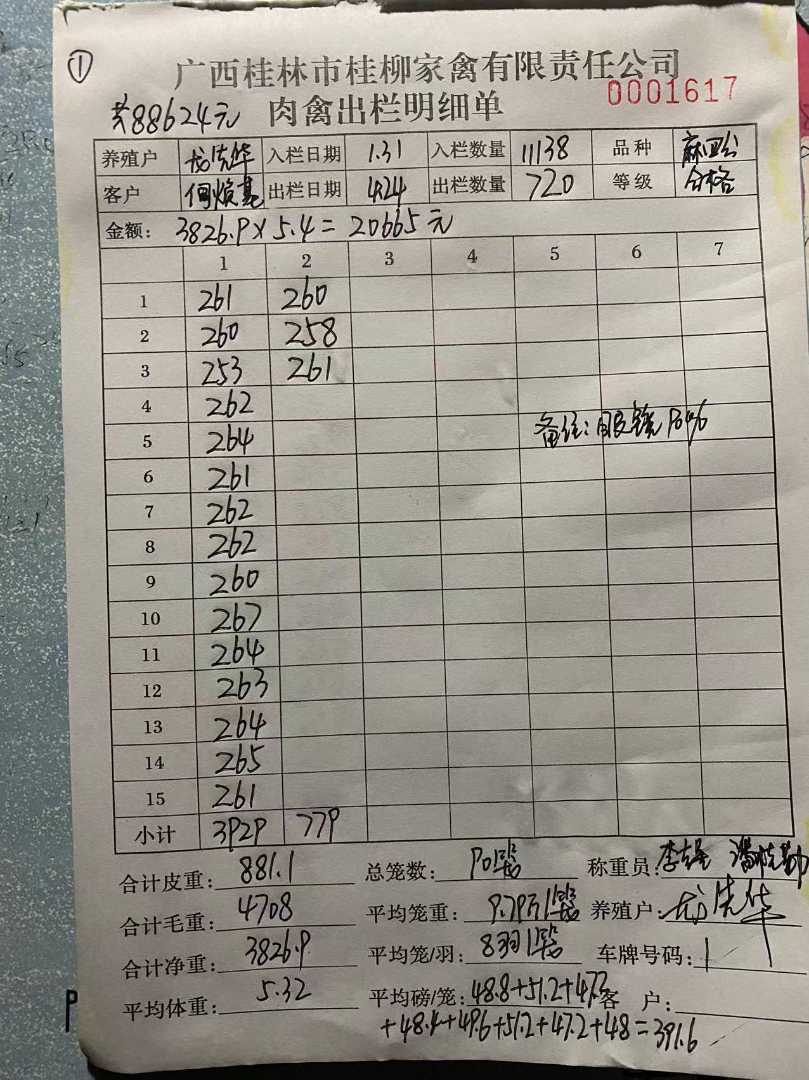 ①
广西桂林市桂柳家禽有限责任公司
共88624元 肉禽出栏明细单 0001617
养殖户 龙先华 入栏日期 1.31 入栏数量 11138 品种
客户 出栏日期 4.24 出栏数量 720 等级 合格
金额: 3826.9×5.4=20665元
1 2 3 4 5 6 7
1 261 260
2 260 258
3 253 261
4 262
5 264 备注:眼镜
6 261
7 262
8 262
9 260
10 267
11 264
12 263
13 264
14 265
15 261
小计 3929 779
合计皮重: 881.1 总笼数: 90笼 称重员:
合计毛重: 4708 平均笼重: 9.79斤/笼 养殖户: 龙先华
合计净重: 3826.9 平均笼/羽: 8羽/笼 车牌号码:
平均体重: 5.32 平均磅/笼: 48.8+51.2+47.2 客 户:
+48.4+49.6+51.2+47.2+48=391.6